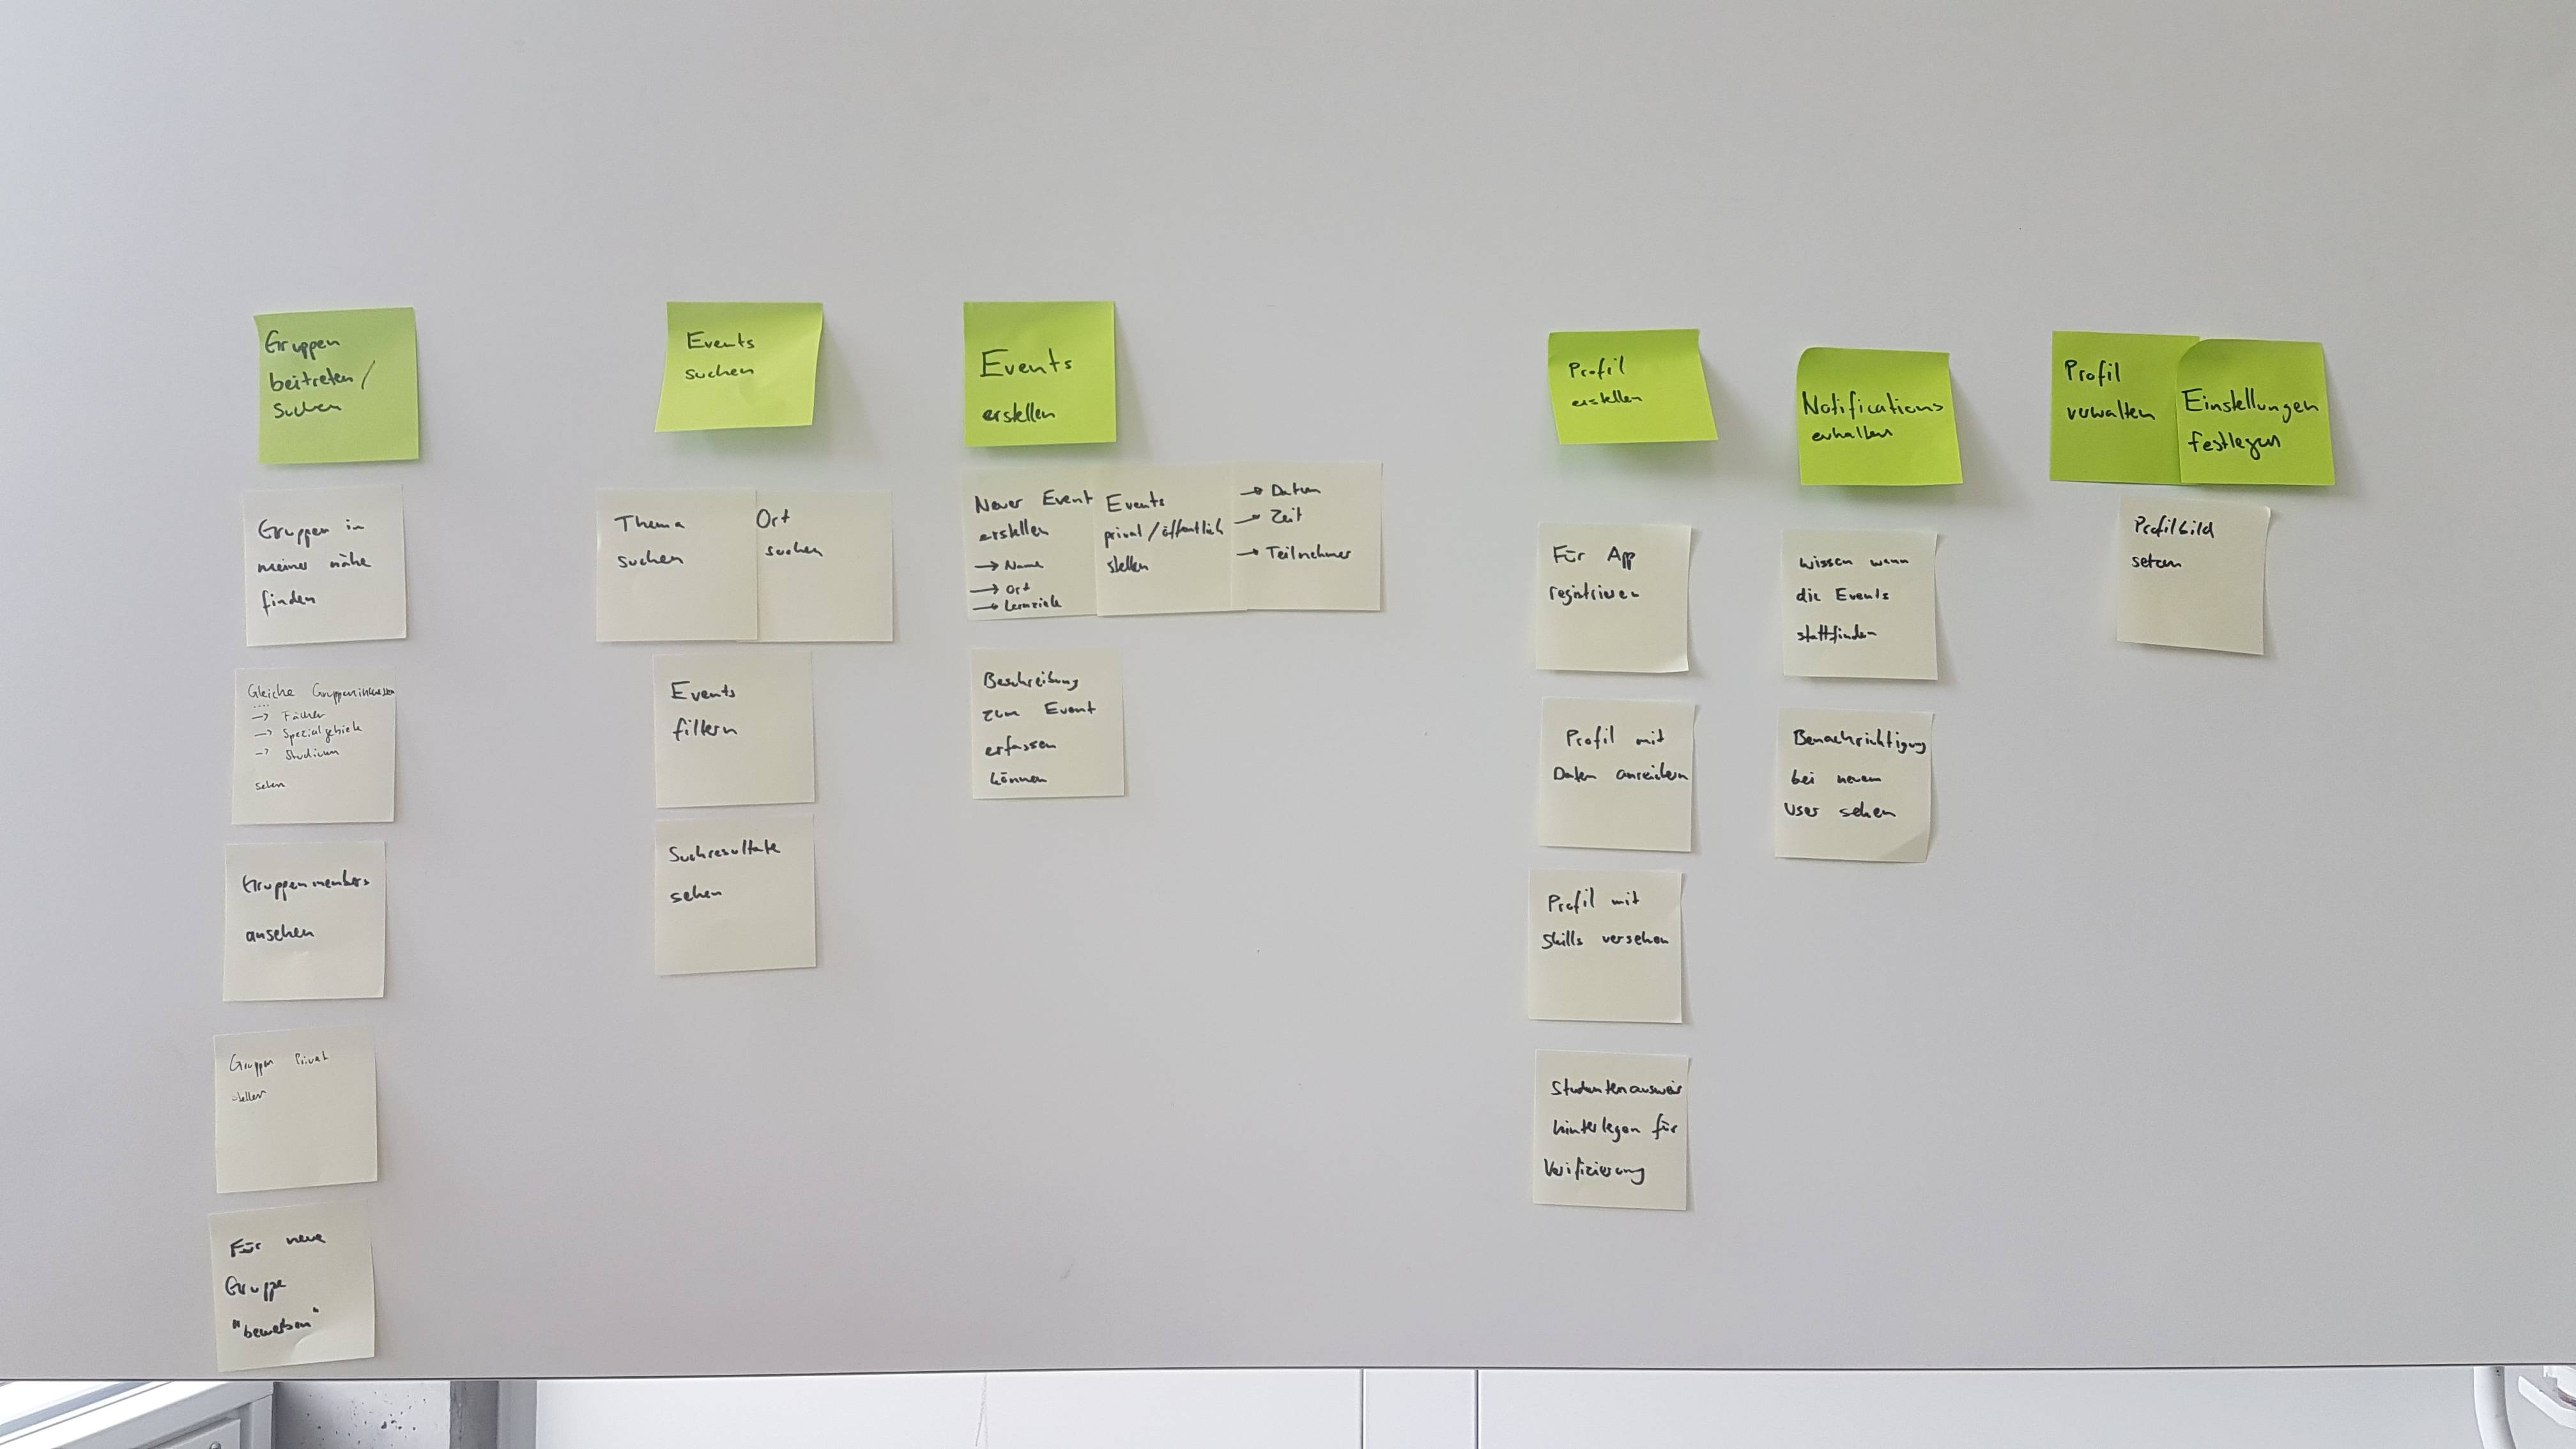 Gruppen
beitreten/
suchen
Gruppen in
meiner nähe
finden
Gleiche Gruppeninteressen
....
→ Fächer
→ Spezialgebiete
→ Studium
sehen
Gruppenmembers
ansehen
Gruppen Privat
stellen
Für neue
Gruppe
"bewerben"
Events
suchen
Thema
suchen
Ort
suchen
Events
filtern
Suchresultate
sehen
Events
erstellen
Neuer Event
erstellen
→ Name
→ Ort
→ Lernziele
Events
privat/öffentlich
stellen
→ Datum
→ Zeit
→ Teilnehmer
Beschreibung
zum Event
erfassen
können
Profil
erstellen
Für App
registrieren
Profil mit
Daten anreichern
Profil mit
Skills versehen
Studentenausweis
hinterlegen für
Verifizierung
Notifications
erhalten
wissen wann
die Events
stattfinden
Benachrichtigung
bei neuem
User sehen
Profil
verwalten
Einstellungen
festlegen
Profilbild
setzen